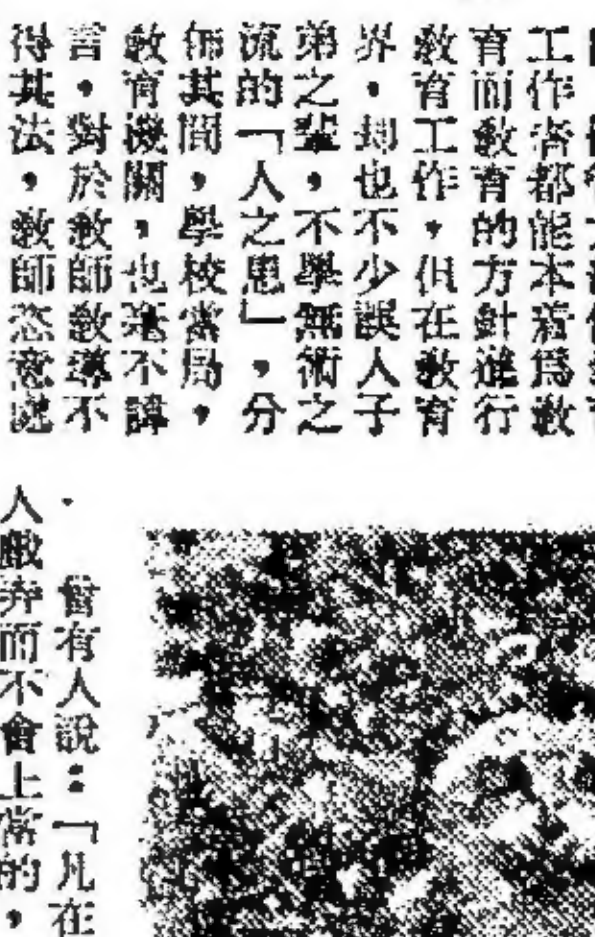 工作者都能本着爲教
育而教育的方針進行
教育工作,但在教育
界,却也不少誤人子
弟之輩,不學無術之
流的「人之患」,分
佈其間,學校當局,
教育機關,也毫不諱
言,對於教師教導不
得其法,教師恣意
曾有人說:「凡在
人戲弄而不會上當的,